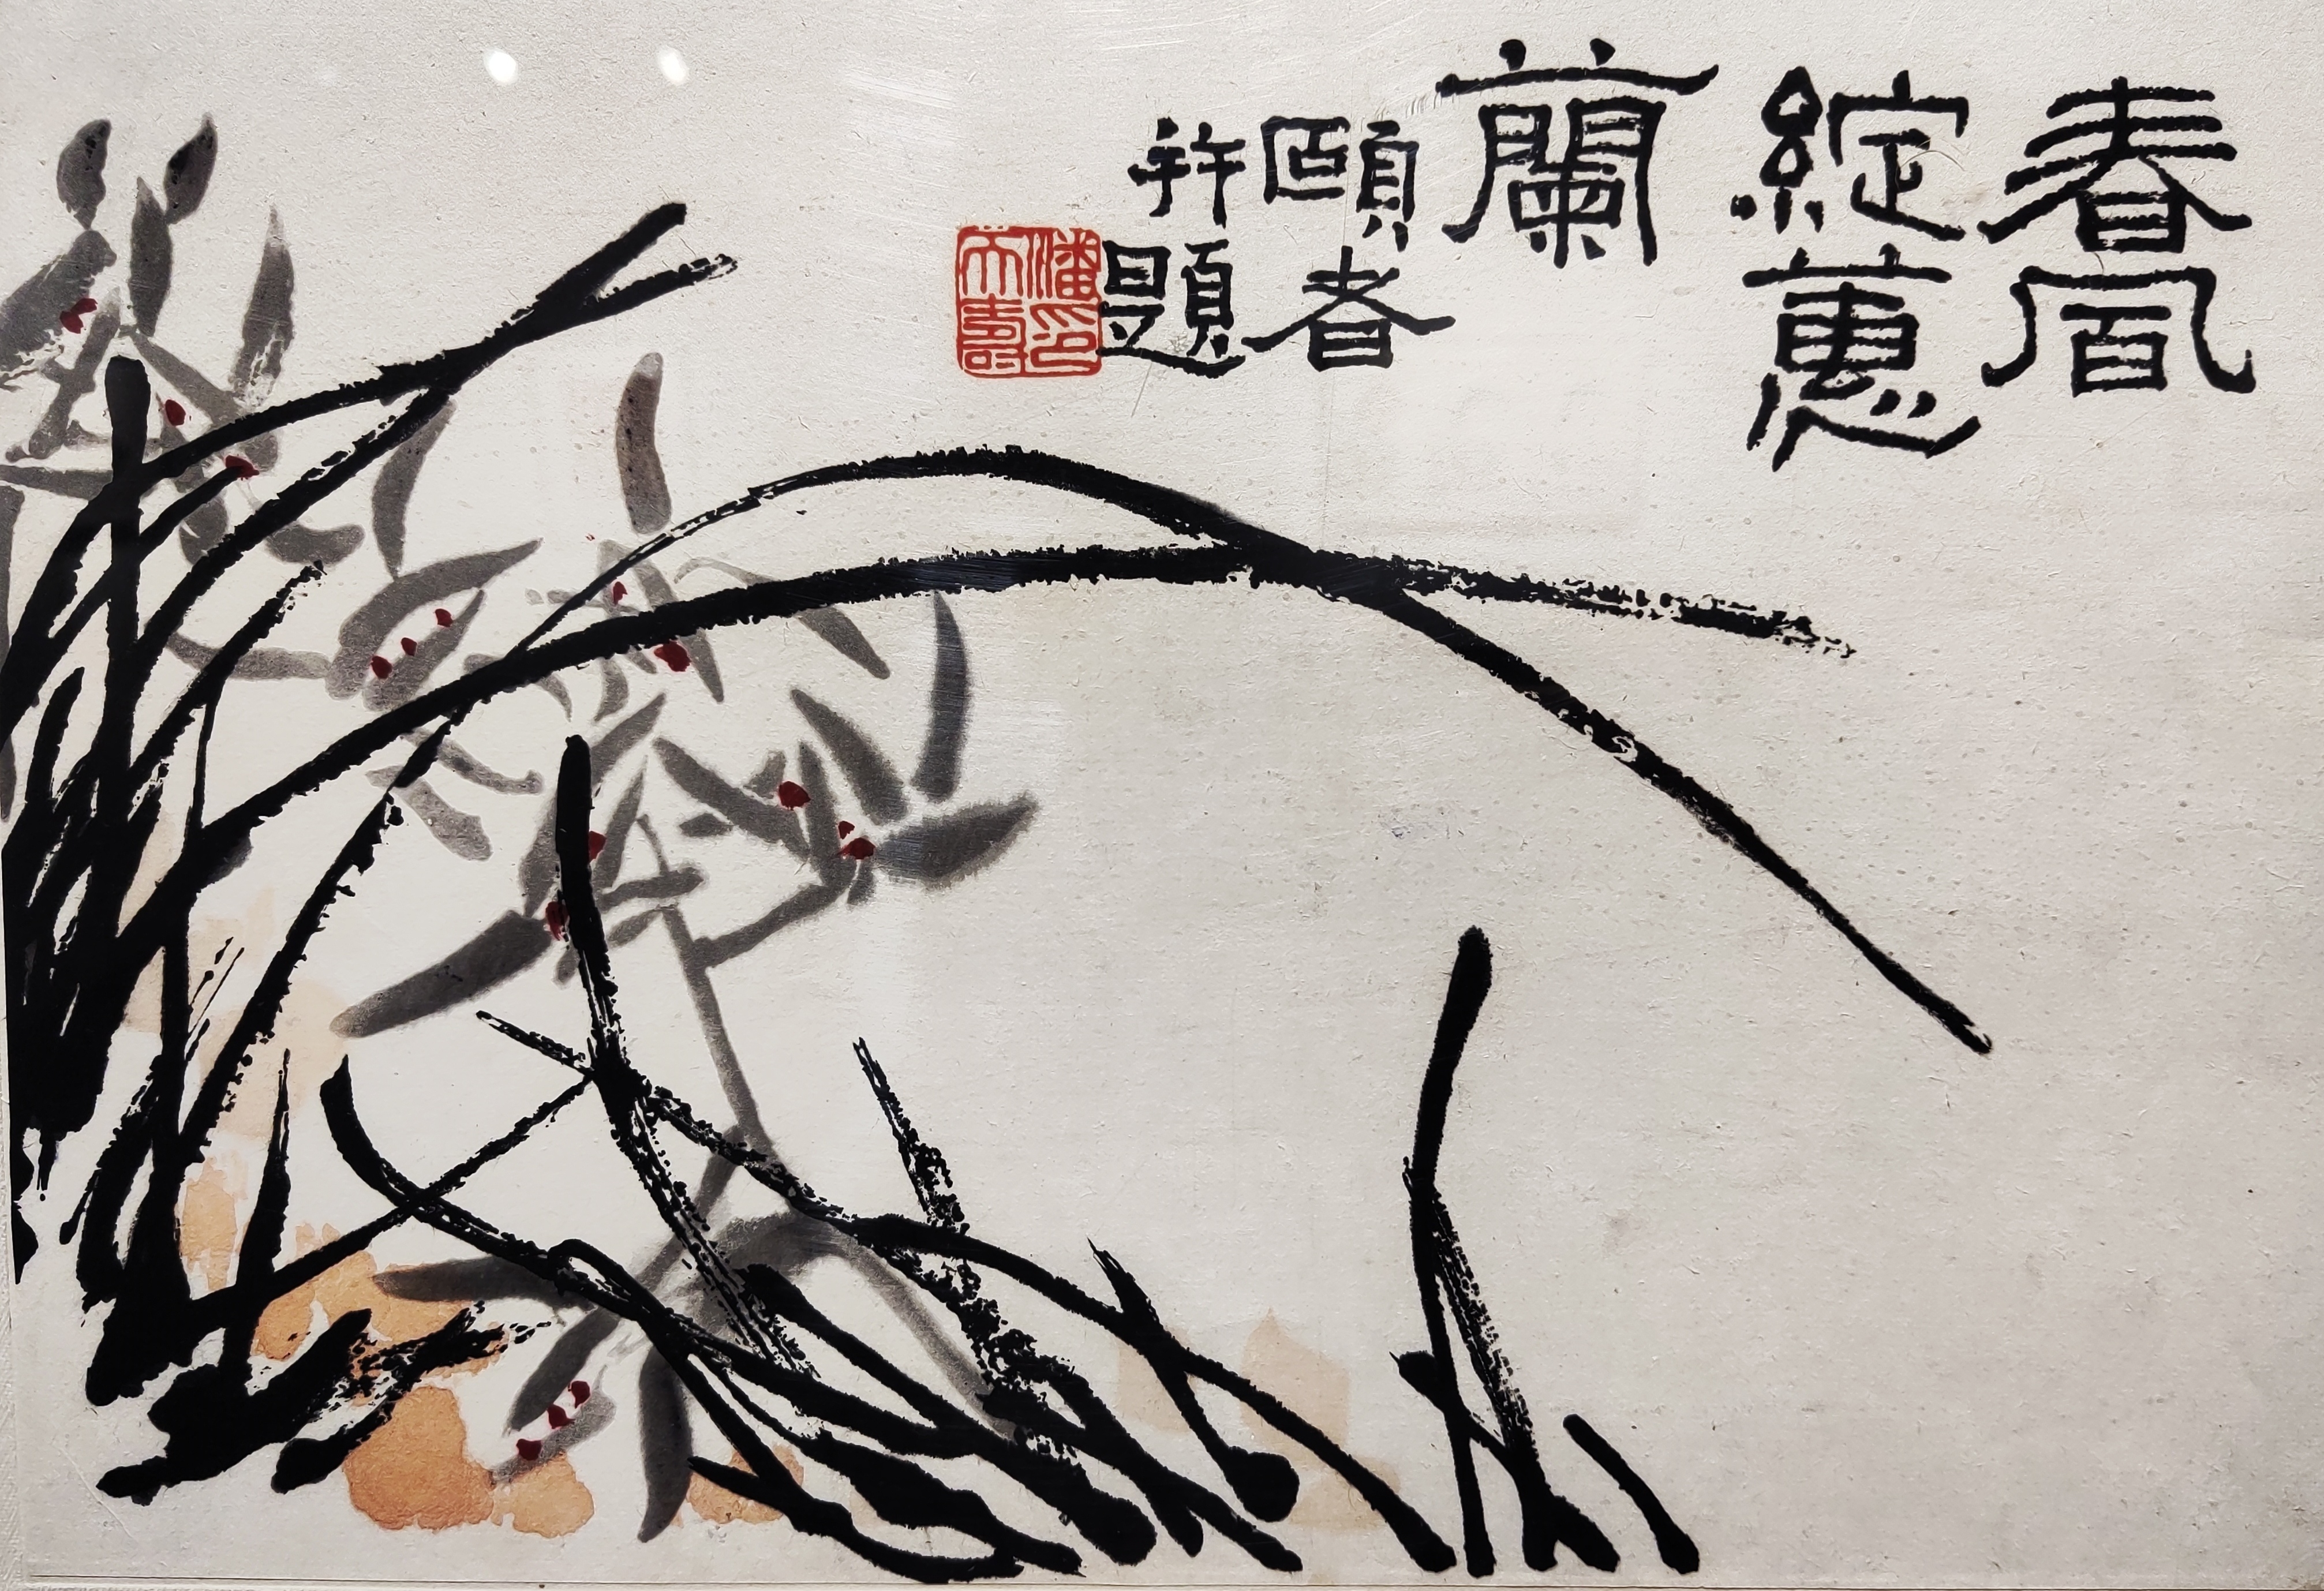 春風
綻蕙
蘭
頤者
并題
潘印
天壽